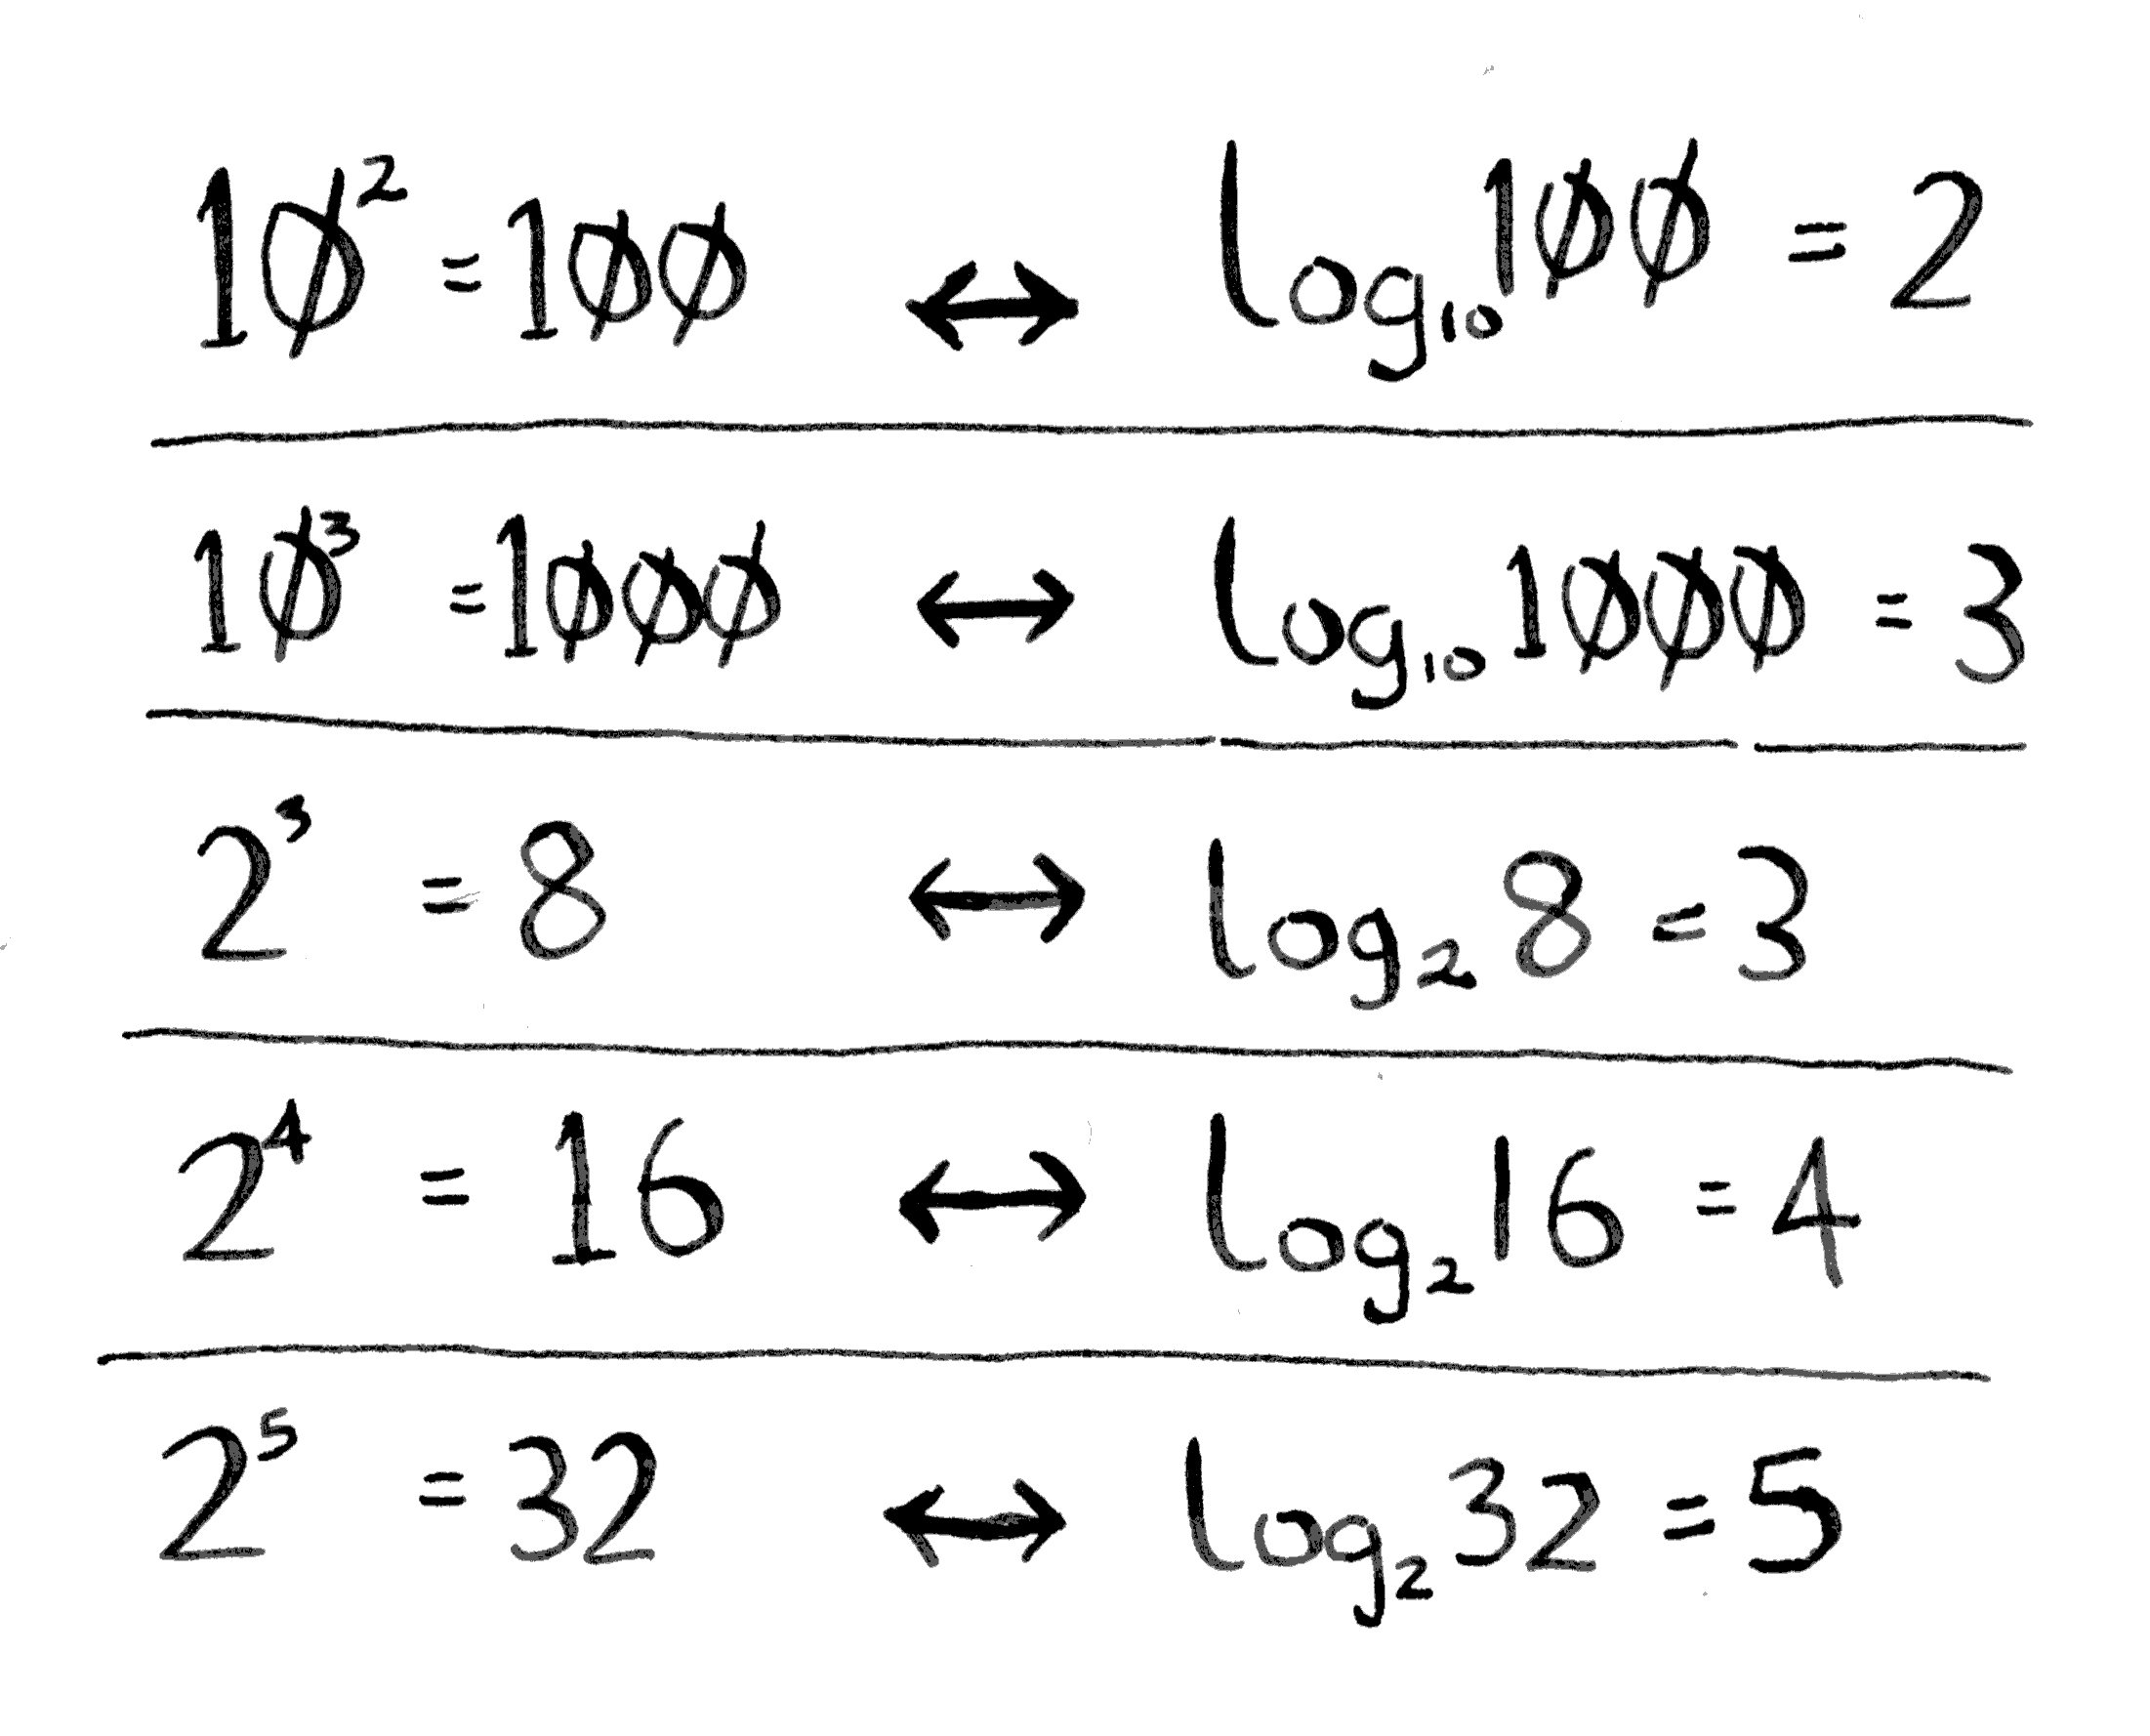 10² = 100 ↔ log₁₀100 = 2
10³ = 1000 ↔ log₁₀1000 = 3
2³ = 8 ↔ log₂8 = 3
2⁴ = 16 ↔ log₂16 = 4
2⁵ = 32 ↔ log₂32 = 5